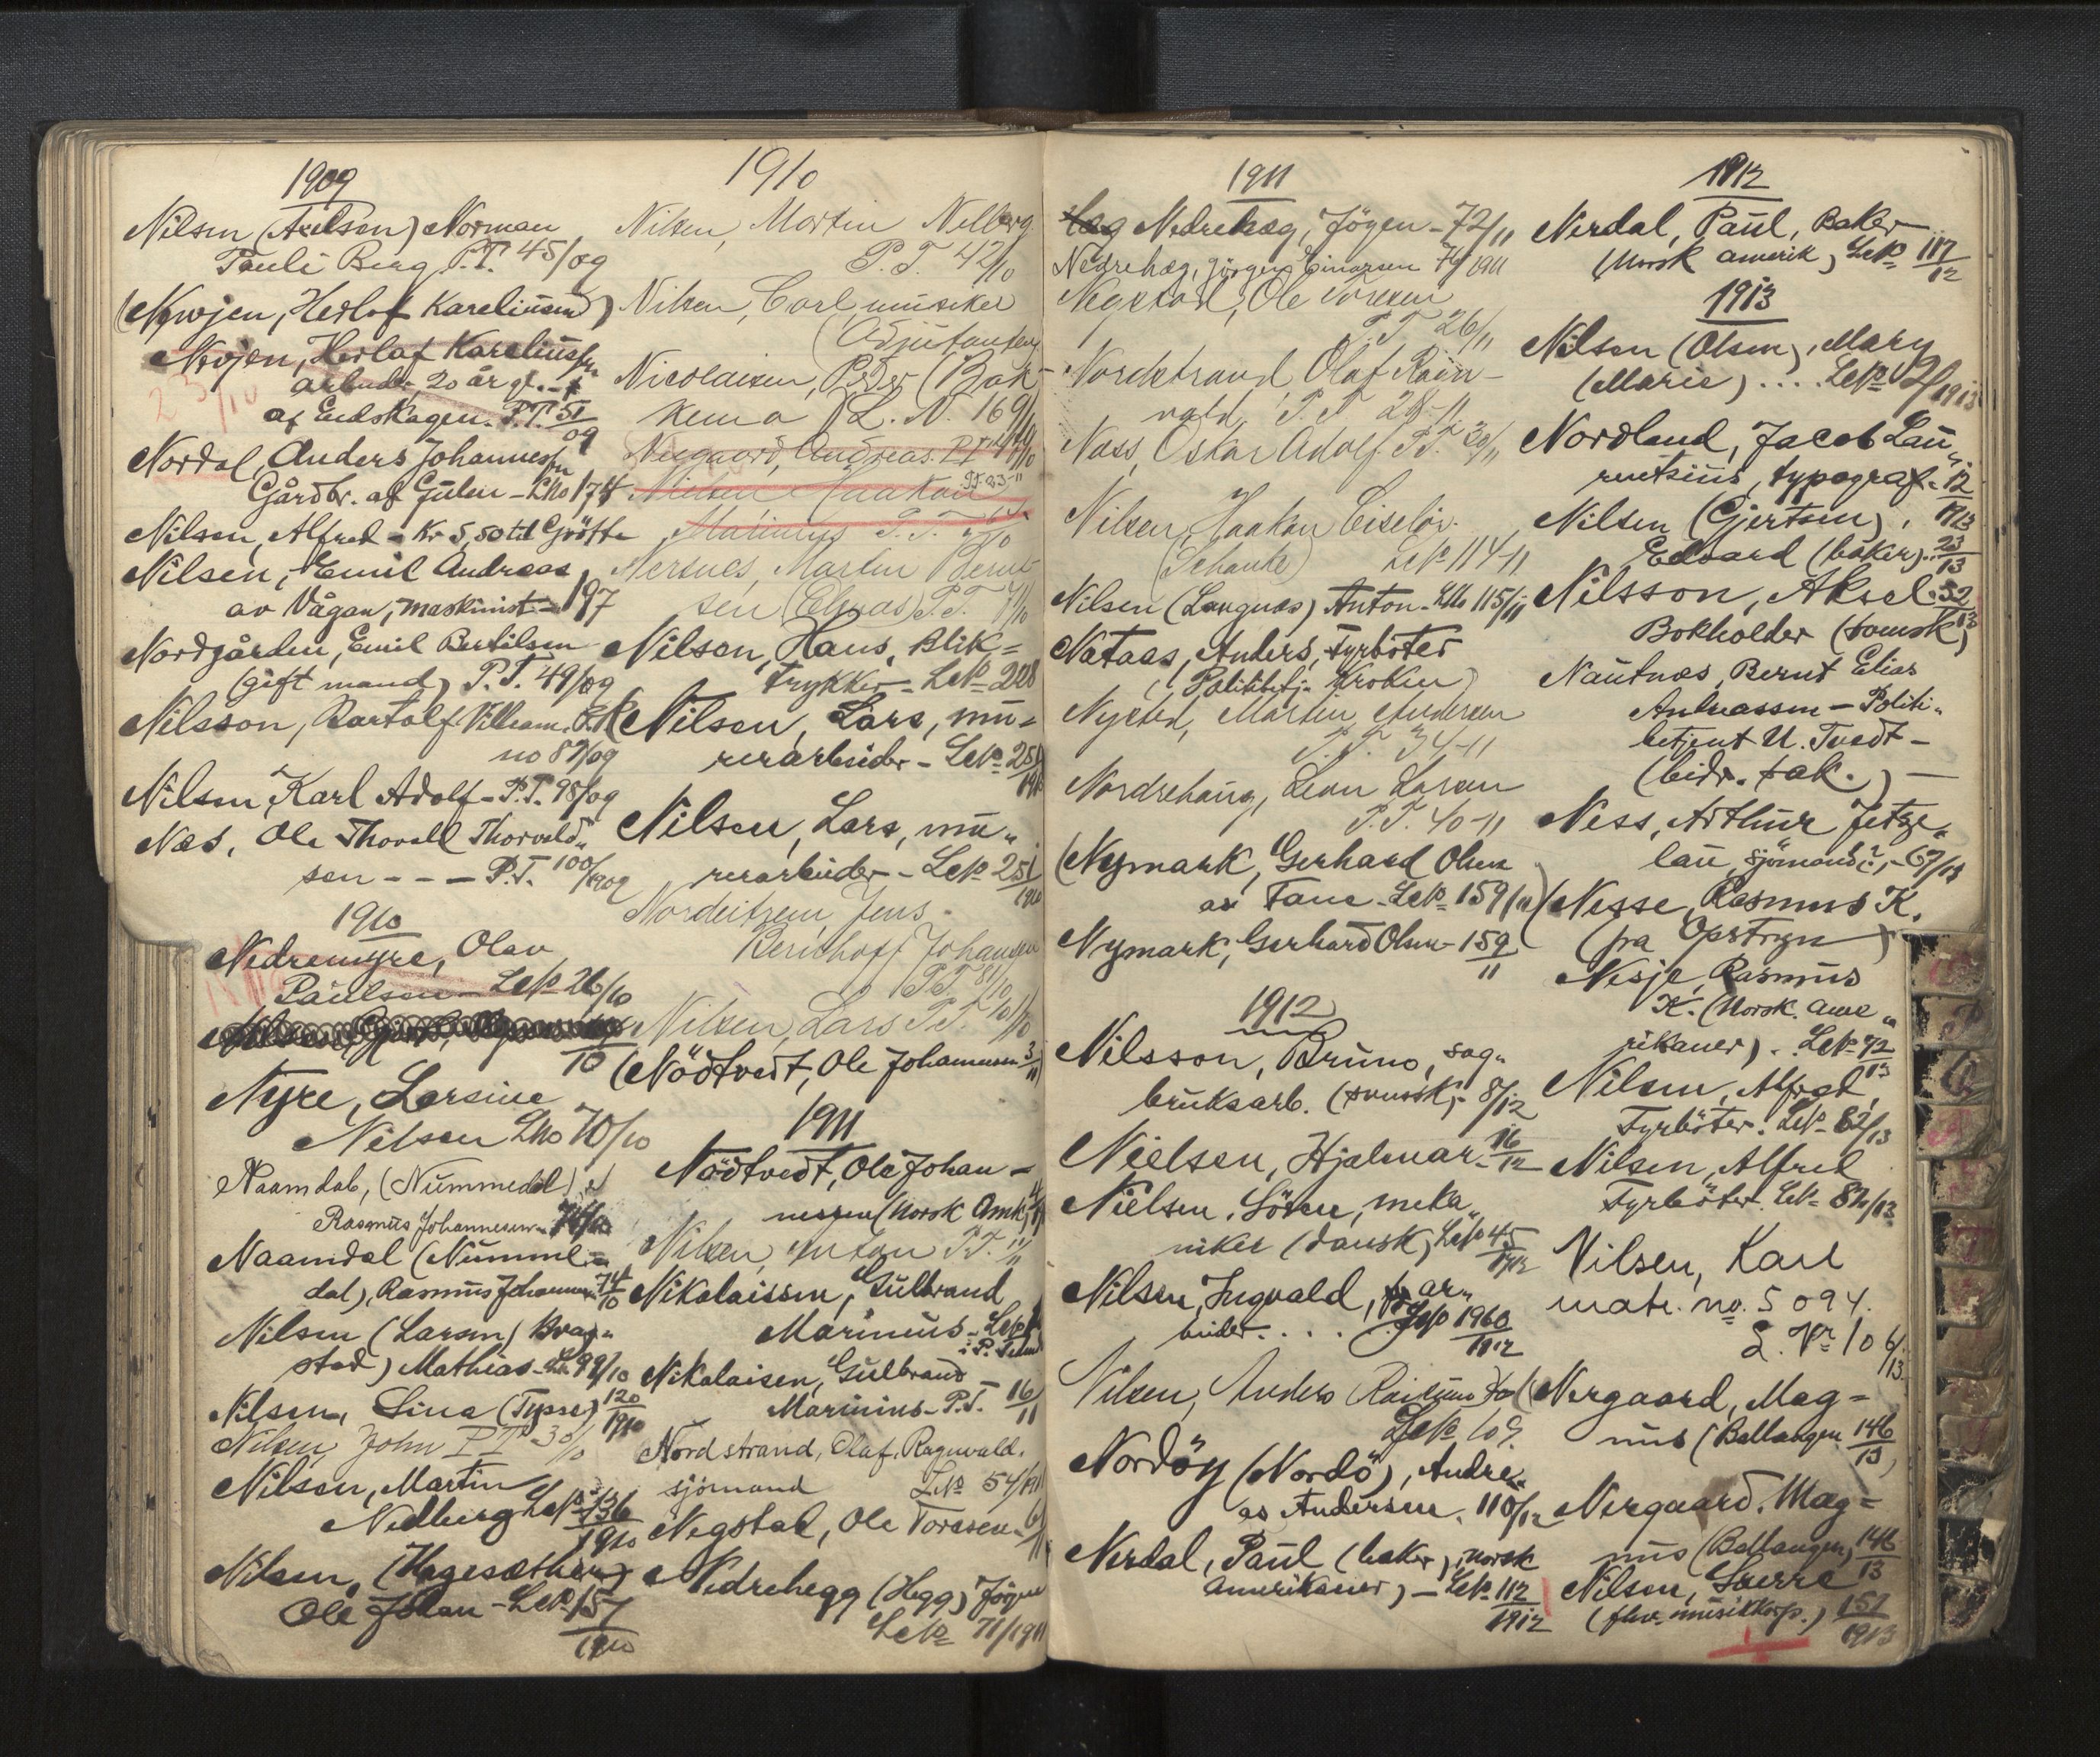 1909
Nilsen (Axelsen) Norman
Pauli Berg P.T. 45/09
(Nyvojen, Herlof Kareliussen)
Nyvojen, Herlof Kareliussen
arbeid. 20 år gl.
af Eidskogen. P.T. 51/09
23/10
Nordal, Anders Johannessen
Gårdbr. af Gulen - LNo 174
Nilsen, Alfred - Kr 5,50 til Grøtte
Nilsen, Emil Andreas
av Vågan, maskinist - 197
Nordgården, Emil Bertilsen
(gift mand) P.T. 49/09
Nilsson, Bartolf Villeam.
no 87/09
Nilsen, Karl Adolf - P.T. 98/09
Næs, Ole Thorvald Thorvald„
sen - - - P.T. 100/1909
1910
Nedremyre, Olav
Paulsen - LNo 26/10
10
Nyre, Larsine
Nilsen LNo 70/10
Naamdal, (Nummedal)
Rasmus Johannesen - 74/10
Naamdal (Numme-
dal), Rasmus Johannesen 74/10
Nilsen (Larsen) Kvag„
stad) Mathias - LNo 99/10
Nilsen, Lina (Tysse) 120/1910
Nilsen, John P.T. 30/10
Nilsen, Martin
Nedberg LNo 136/1910
Nilsen, (Hagesæther)
Ole Johan - LNo 157/1910
1910
Nilsen, Martin Nelberg
P.T. 42/10
Nilsen, Carl musiker
(Adjutanten)
Nicolaisen, Peder (Bak-
ken a) L.N. 169/10
Nygaard, Andreas P.T.
Nielsen Haakon P.T. 23-11
Marinius P.T.
Nersnes, Martin Bernt-
sen (Elnæs) P.T. 71/10
Nilson, Hans, Blik=
trykker - LNo 208
Nilsen, Lars, mu=
rerarbeider - LNo 251/1910
Nilsen, Lars, mu„
rerarbeider - LNo 251/1910
Nordeitzem Jens
Berlhoff Johansen
P.T. 81/10
Nilsen, Lars P.T. 101/10
(Nödtvedt, Ole Johannesen 3/11)
1911
Nödtvedt, Ole Johan-
nessen (Norsk Amk) 4/11
Nilsen, Anton P.T. 11/11
Nikolaissen, Gulbrand
Marinius - LNo
Nikolaisen, Gulbrand
Marinius - P.T. 16/11
Nordstrand, Olaf Ragnvald.
sjömand LNo 54/1911
Negstad, Ole Toresen - 6/11
Nedrehegg (Hegg) Jörgen
LNo 71/1911
1911
Nedrehæg, Jögen - 72/11
Nedrehæg, Jörgen Einarsen 74/1911
Negstad, Ole Toresen
P.T. 26/11
Nordstrand Olaf Ragn-
vald P.T. 28-11
Næss, Oskar Adolf P.T. 30/11
Nilsen, Haakon Eiseløv
(Schanke) LNo 114-11
Nilsen (Langnæs) Anton - LNo 115/11
Nataas, Anders, Fyrböter
(Politibetj. Kroken)
Nysted, Martin Andersen
P.T. 34-11
Nordrehaug, Leon Larsen
P.T. 40-11
(Nymark, Gerhard Olsen
av Fane - LNo 159/11)
Nymark, Gerhard Olsen - 159/11
1912
Nilsson, Bruno, sag„
bruksarb. (svensk) - 8/12
Nielsen, Hjalmar - 16/12
Nielsen, Sören, meka„
niker (dansk) LNo 45/1912
Nilsen, Ingvald, ar„
beider . . . . LNo 1960/1912
Nilsen, Anders
LNo 109.
Nordöy (Nordö), Andre„
as Andersen. 110/12
Nerdal, Paul (baker), norsk
amerikaner) - LNo 112/1912
1912
Nerdal, Paul, Baker
(Norsk amerik) LNo 117/12
1913
Nilsen (Olsen), Mary
(Marie) . . . . LNo 2/1913
Nordland, Jacob Lau„
rentsius, typograf - 12/1913
Nilsen (Gjertsen),
Edvard (baker) - 23/13
Nilsson, Aksel - 52/13
Bokholder (svensk)
Nautnæs, Bernt Elias
Andreassen - Politi„
betjent U. Tvedt -
(bidr. sak.) -
Ness, Arthur Jetze„
lau, sjömand?, - 67/13
(Nesse, Rasmus K.
fra Opstryn)
Nesje, Rasmus
K. (Norsk. Ame„
rikaner). LNo 72/13
Nilsen, Alfred,
Fyrböter. LNo 82/13
Nilsen, Alfred
Fyrböter. LNo 82/13
Nilsen, Karl
matr. no. 5094.
L. Nr 106/13.
(Nergaard, Mag=
nus (Ballangen 146/13)
Nergaard, Mag=
nus (Ballangen) 146/13
Nilsen, Sverre
(fhv. musikkorp.) 151/1913